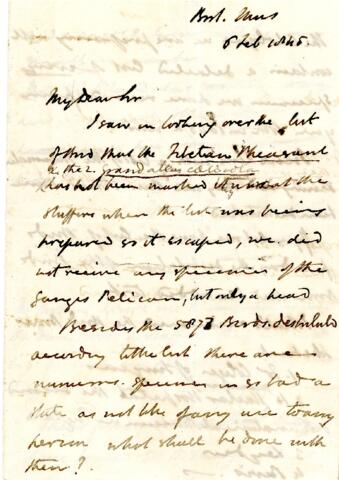 Brit. Mus
6 Feb 1845.
My Dear Sir
I saw in looking over the list
of that the Tibetan Pheasant
& the 2
has not been marked it was at the
stuffers when the list was being
prepared so it escaped, we did
not receive any specimen of the
Ganges Pelican, but only a head
Besides the 5877 Birds distributed
according to the list there are
numerous specimens in so bad a
state as not to be of any use to any
person what shall be done with
them?